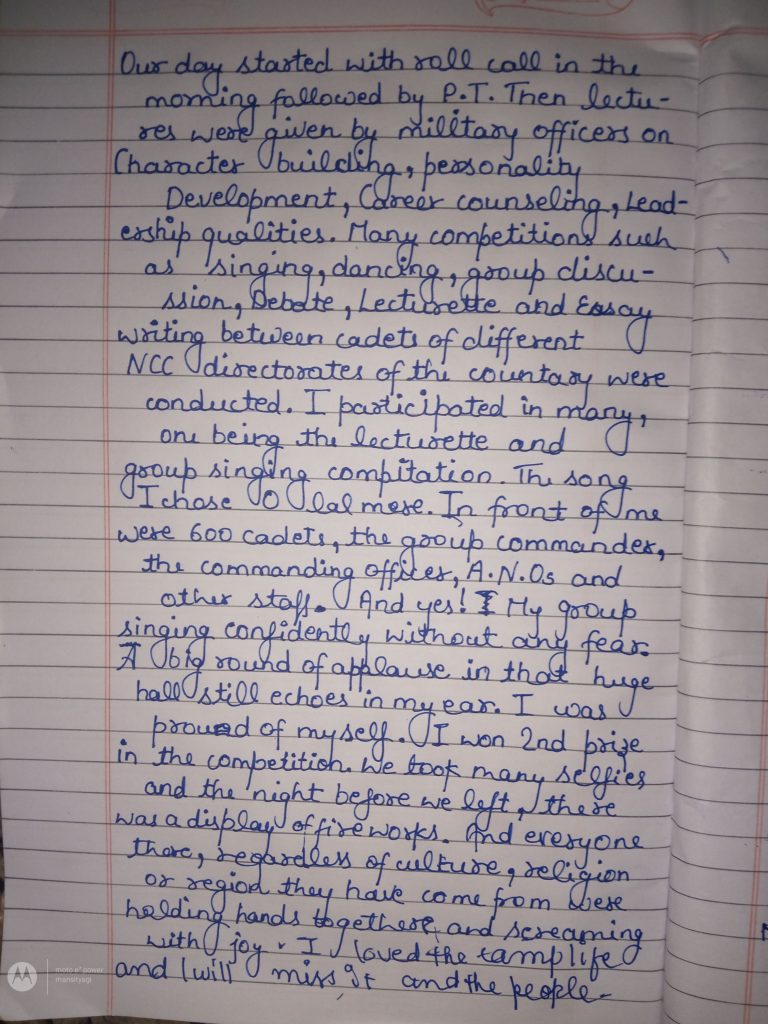 Our day started with roll call in the
morning followed by P.T. Then lectu-
res were given by military officers on
Character building, personality
Development, Career counseling, Lead-
ership qualities. Many competitions such
as singing, dancing, group discu-
ssion, Debate, Lecturette and Essay
writing between cadets of different
NCC directorates of the countary were
conducted. I participated in many,
one being the lecturette and
group singing compitation. The song
I chose O lal mere. In front of me
were 600 cadets, the group commander,
the commanding officer, A.N.Os and
other staff. And yes! My group
singing confidently without any fear.
A big round of applause in that huge
hall still echoes in my ear. I was
proud of myself. I won 2nd prize
in the competition. We took many selfies
and the night before we left, there
was a display of fireworks. And everyone
there, regardless of culture, religion
or region they have come from were
holding hands togethere, and screaming
with joy. I loved the camp life
and I will miss it and the people-
moto e⁵ power
mansityagi